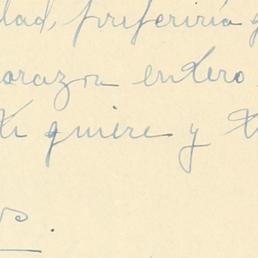 dad, preferiría
corazon entero
te quiere y te